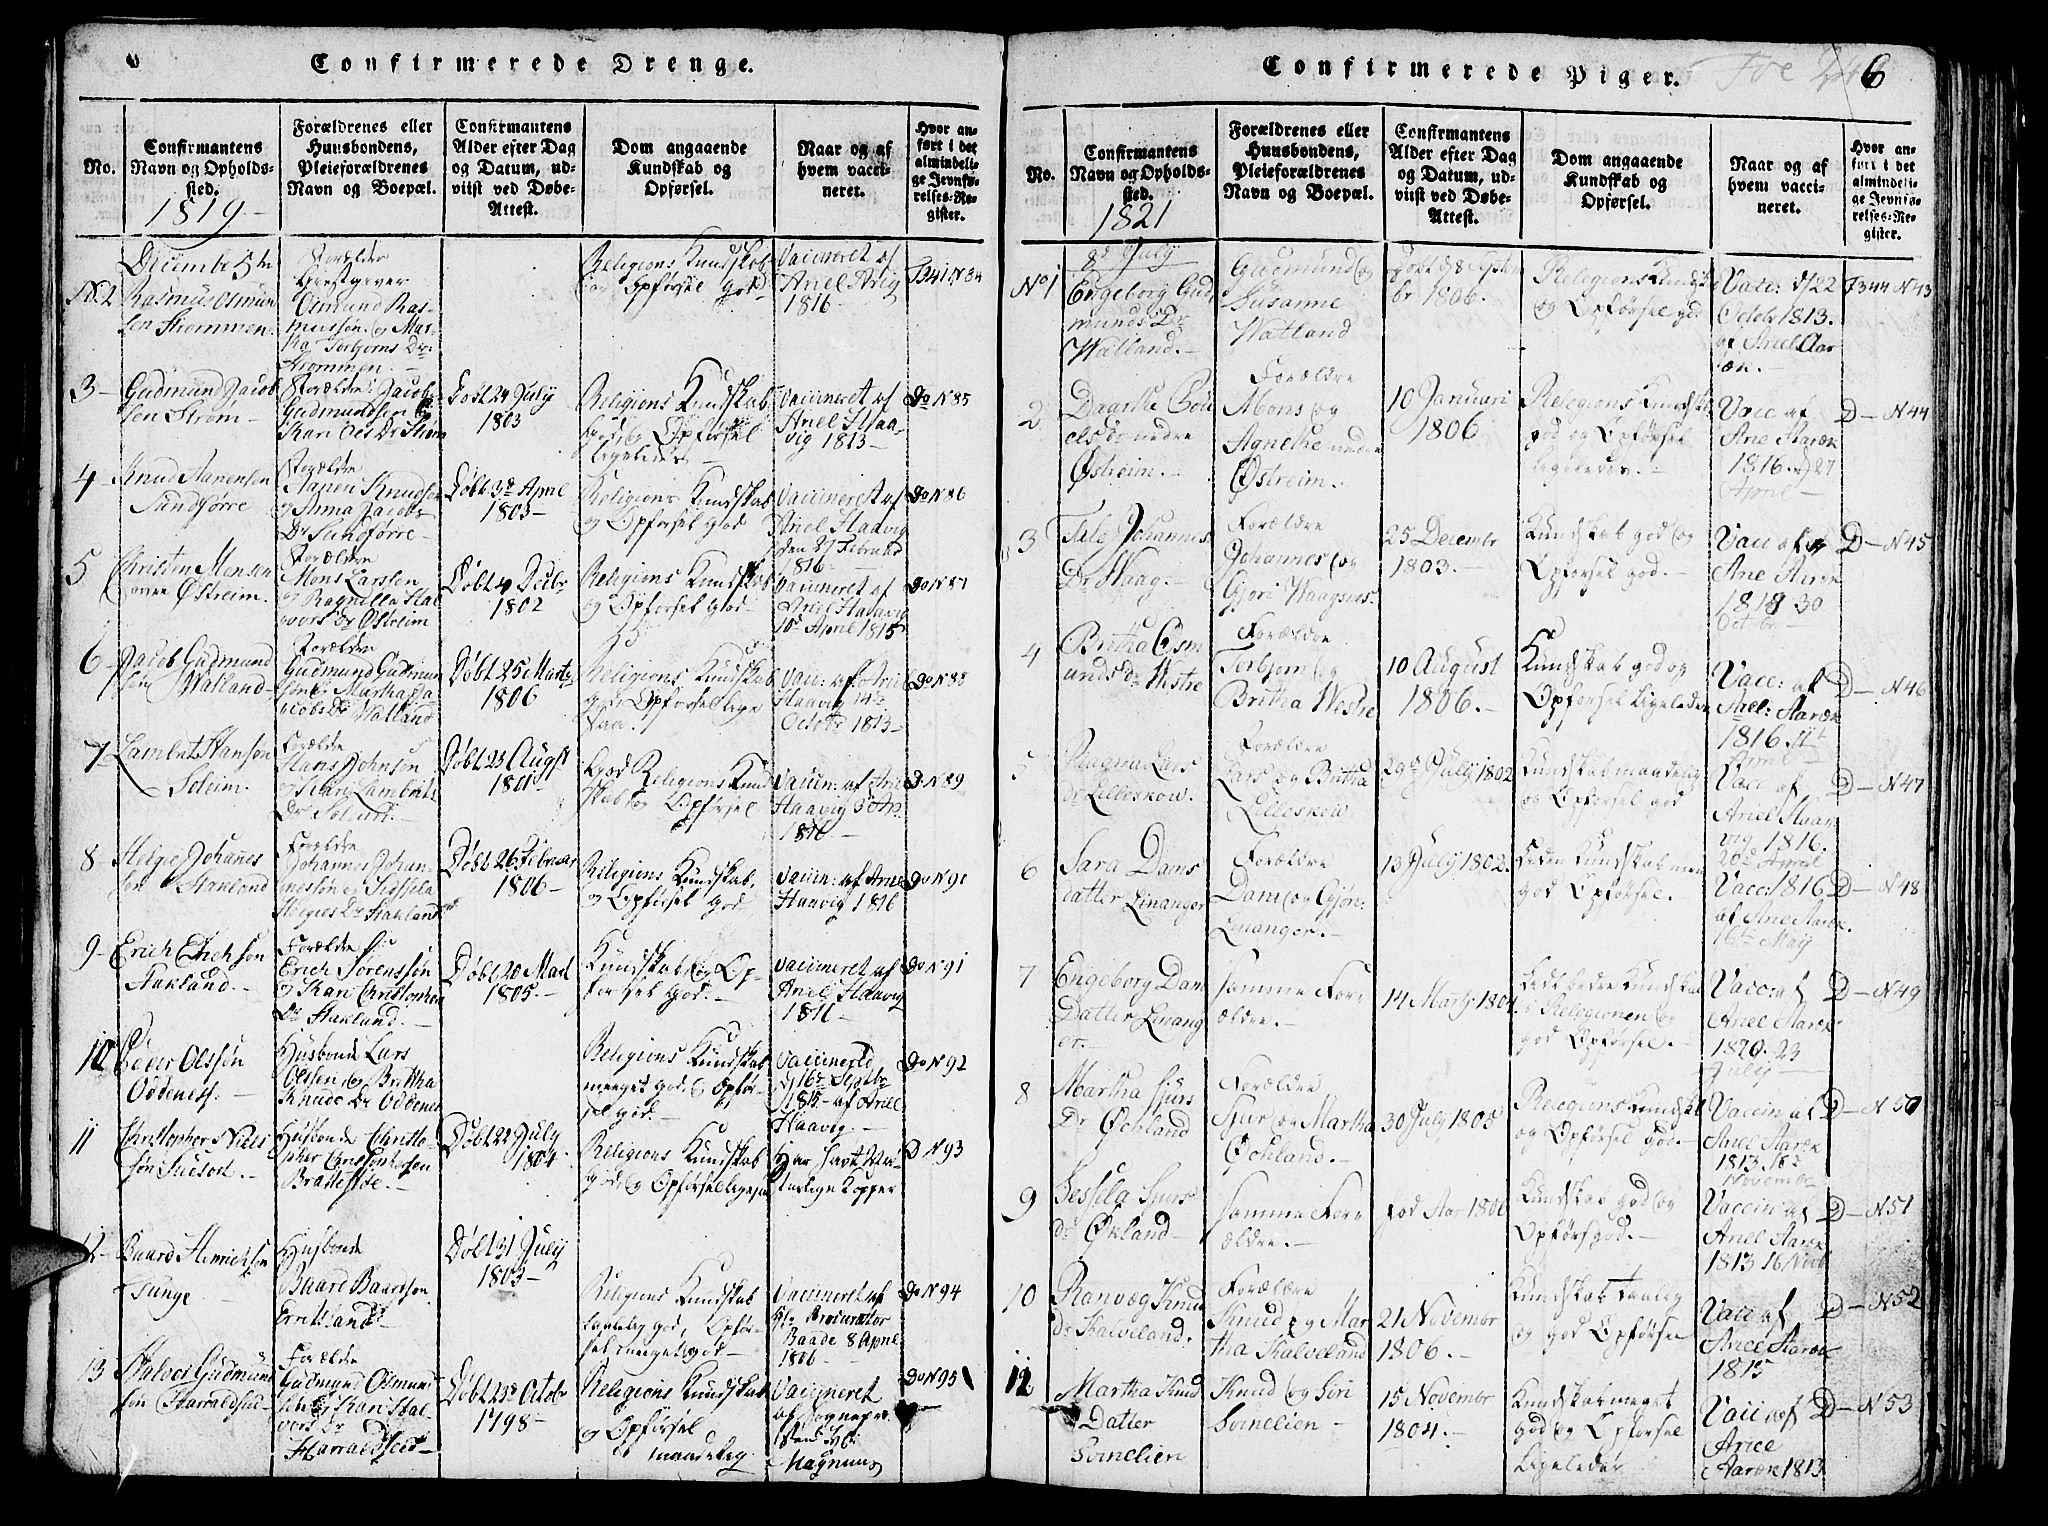 Confirmerede Drenge.
No.
Confirmantens
Navn og Opholds-
sted.
1819
Forældrenes eller
Huusbondens,
Pleieforældrenes
Navn og Boepæl.
Confirmantens
Alder efter Dag
og Datum, ud-
viist ved Døbe-
Attest.
Dom angaaende
Kundskab og
Opførsel.
Naar og af
hvem vacci-
neret.
Hvor an-
ført i det
almindeli-
ge Jevnfø-
relses-Re-
gister.
No. 2
Rasmus Osmun
sen Strømmen.
Forældre
Osmund Ras-
mussøn og Mar-
tha Torbjørns Dr
Strømmen.
Religions Kundskab
og Opførsel god
Vaccineret af
1816
3
Gudmund Jacob
sen Strøm
Forældre Jacob
Gudmundsen og
Kari Ols Dr Strøm
Døbt 24 July
1803
Religions Kundskab
god, og Opførsel
ligeledes
Vaccineret af
Ariel Haa-
vig 1813
Do N 85
4
Knud Aanensen
Sundførre
Forældre
Aanen Knudsen
og Anna Jacobs
Dr Sundførre
Døbt 3d April
1803
Religions Kundskab
og Opførsel god
Vaccineret af
Ariel Haavig
den 27 Februar
1816
Do N 86
5
Christen Monsen
Østreim.
Forældre
Mons Larsen
og Ragnilla Hal
vors Dr Østreim
Døbt 4 Octbr
1802
Religions Kundskab
og Opførsel god
Vaccineret af
Ariel Haavig
10d April 1815
Do N 87
6
Jacob Gudmund
sen Watland
Forældre
Gudmund Gudmun
sen og Martha Ja
cobs Dr Watland
Døbt 25 Marty
1806
Religions Kundskab
og Opførsel lige
saa.
Vacc: af Ariel
Haavig 14de
Octobr 1813
Do N 88
7
Lambert Hansøn
Soleim.
Forældre
Hans Johnsøn
og Kari Lambrits
Dr Soleim
Døbt 23 Augst
1801
God Religions Kund
skab og Opførsel
Vaccin: af Ariel
Haavig
1816
D N 89
8
Helge Johanes
søn Stakland
Forældre
Johannes Johan
nessøn og Sidsela
Helges Dr Stakland
Døbt 26 Februar
1806
Religions Kundskab,
og Opførsel god
Vaccin: af Ariel
Haavig 1816
Do N 90
9
Erich Erichsøn
Stakland.
Forældre
Erich Sørenssøn
og Kari Christophers
Dr Stakland.
Døbt 20 Mart
1805.
Kundskab og Op-
førsel god.
Vaccineret af
Ariel Haavig
1816
Do N 91
10
Peder Olssøn
Oddenes.
Husbonde Lars
Olssen og Brittha
Knuds Dr Oddenes
Religions Kundskab
meeget god, og Opfør-
sel god.
Vaccinered
d 16de Septbr
1815 af Ariel
Haavig.
Do N 92
11
Christopher Niels
søn
Husbonde Christo-
pher Christophersøn
Bratteside.
Døbt 22 July
1804.
Religions Kundskab
god, og Opførsel ligesaa
Har havt Natur-
lige Kopper
D N 93
12
Baard Henrichsøn
Tunge
Husbonde
Baard Baardsøn
Døbt 31 July
1803
Religions Kundskab
taalelig god, Opfør-
sel meeget god
Vaccineret af
Hr Procurator
Baade 8 April
1816
Do N 94
13
Halvor Gudmund
søn Harraldseid
Forældre
Gudmund Osmund
søn og Kari Hal-
vors Dr
Harraldseid
Døbt 23d Octobr
1798
Religions Kundskab
og Opførsel
maadelig
Vaccineret
af Sognepræ-
sten Hr
Magnus
Do N 95
Confirmerede Piger.
6
No.
Confirmantens
Navn og Opholds-
sted.
1821
Forældrenes eller
Huusbondens,
Pleieforældrenes
Navn og Boepæl.
Confirmantens
Alder efter Dag
og Datum, ud-
viist ved Døbe-
Attest.
Dom angaaende
Kundskab og
Opførsel.
Naar og af
hvem vacci-
neret.
Hvor an-
ført i det
almindeli-
ge Jevnfø-
relses-Re-
gister.
8d July
No 1
Engeborg Gud
munds Dr
Watland.
Gudmund og
Susanne
Watland
Døbt d 8 Septem
br 1806.
Religions Kundskab
og Opførsel god
Vacc: d 22
Octobr 1813.
af Ariel Aar
æk.
F 344 N 43
2
Daarthe
nedre
Østreim.
Forældre
Mons og
Agnethe nedre
Østreim.
10 Januari
1806
Religions Kundskab
god og Opførsel
ligeledes.
Vacc af
Ane Aaræk
1816. d 27
April
D N 44
3
Tale Johannes
Dr Waag.
Forældre
Johannes og
Gjøri Waagsnes.
25 Decembr
1803.
Kundskab god og
Opførsel god.
Vacc af
Ane Aaræk
30
Octobr
D N 45
4
Britha Osm
unds Dr Westre
Forældre
Torbjørn og
Britha Westre
10 August
1806.
Kundskab god og
Opførsel ligeledes
Vacc: af
Ariel: Aaræk
1816. 11t
April
D N 46
5
Ragna Lars
dr Lilleskow.
Forældre
Lars og Britha
Lilleskow
29de July 1802
Kundskab maadelig
og Opførsel god
Vacc af
Ariel Haa
vig 1816.
20d April
D N 47
6
Sara Dams
datter Linanger
Forældre
Dam og Gjøre
Linanger.
13 July 1802.
Liden Kundskab men
god Opførsel.
Vacc: 1816
af Ane Aaræk.
16de May
D N 48
7
Engeborg Dam
Datter Linang
er.
Samme For
ældre.
14 Marty 1804
Lidt bedre Kundskab
i Religionen og
god Opførsel.
Vacc: af
Ariel Aaræk
1820. 23
July
D N 49
8
Martha Sjurs
Dr Øchland
Forældre
Sjur og Martha
Øchland.
30 July 1805
Religions Kundskab
og Opførsel god.
Vaccin af
Ariel Aaræk
1813 16de
Novembr
D N 50
9
Sessela Sjurs
dr Økland.
Samme For
ældre.
fød Aar 1806
Kundskab god og
Opførs god.
Vaccin af
Ariel Aaræk
1813 16 Novb
D N 51
10
Ranvæg Knud
dr Kalveland.
Forældre
Knud og Mar
tha Kalveland
21 Novembr
1806.
Kundskab taaleg
og god Opførsel
Vacc af
Ariel Aaræk
1815
D N 52
Martha Knud
Datter
Soinelien
Knud og Siri
Soinelien
15 Novembr
1804.
Kundskab meget
god og Opførsel
Ligeledes
Vacc af
Ariel
Aaræk 1813
D N 53